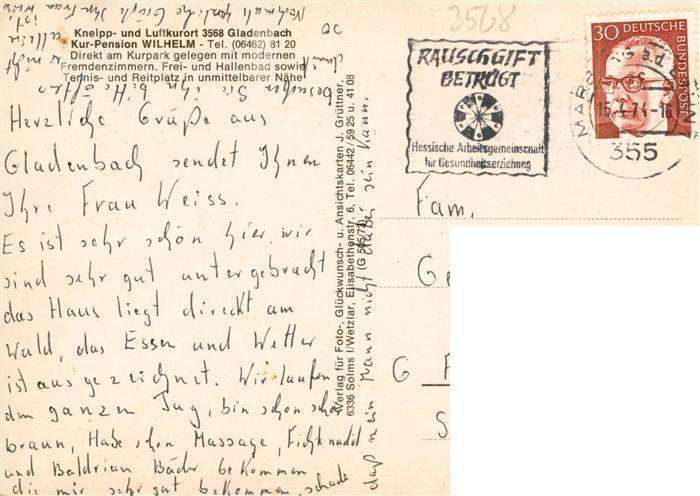 Kneipp- und Luftkurort 3568 Gladenbach
Kur-Pension WILHELM - Tel. (06462) 81 20
Direkt am Kurpark gelegen mit modernen
Fremdenzimmern. Frei- und Hallenbad sowie
Tennis- und Reitplatz in unmittelbarer Nähe
Herzliche Grüße aus
Gladenbach sendet Ihnen
Ihre Frau Weiss.
Es ist sehr schön hier, wir
sind sehr gut untergebracht
das Haus liegt direkt am
Wald, das Essen und Wetter
ist ausgezeichnet. Wir laufen
den ganzen Tag, bin schon schön
braun, Habe schon Massage, Fichtnadel
und Baldrian Bäder bekommen
die mir sehr gut bekommen, schade
daß mein Mann nicht dabei sein kann.
besuchen Sie ihn bitte öfters
damit er nicht
allein ist.
Nochmals herzliche Grüße Ihre Frau Weiss
Verlag für Foto-, Glückwunsch- u. Ansichtskarten J. Grüttner,
6336 Solms I/Wetzlar, Elisabethenstr. 6, Tel. 06442/59 25 u. 41 08
3568
RAUSCHGIFT
BETRÜGT
Hessische Arbeitsgemeinschaft
für Gesundheitserziehung
30 DEUTSCHE
BUNDESPOST
355
Fam.
G